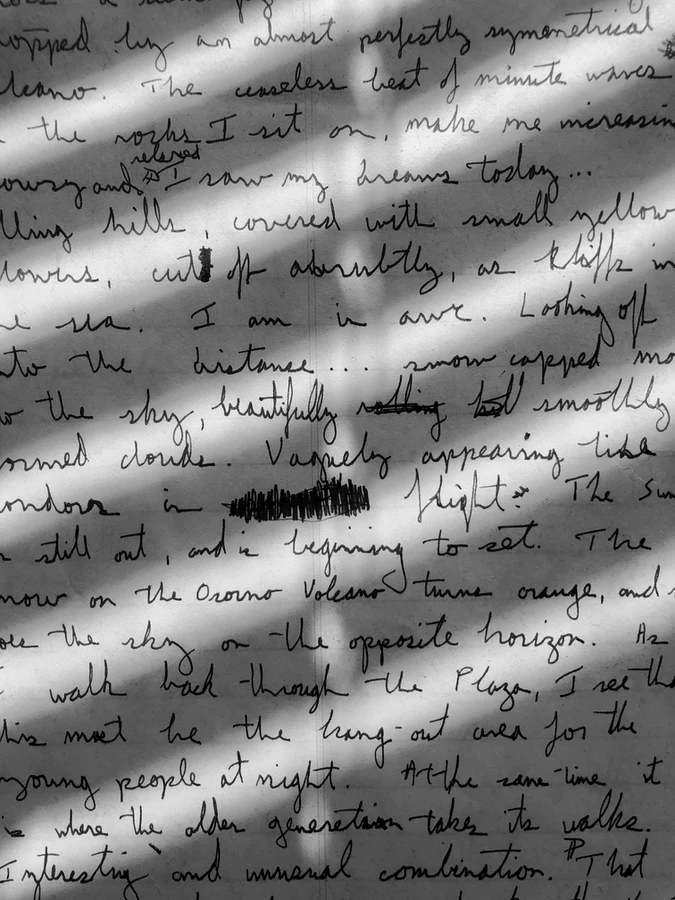 opped by an almost perfectly symmetrical
lcano. The ceaseless beat of minute waves
the rocks I sit on, make me increasin
relaxed
owsy and I saw my dreams today...
lling hills, covered with small yellow
lowers, cut off abrubtly, as kliffs in
e sea. I am in awe. Looking off
nto the distance... snow capped mo
o the sky, beautifully rolling but smoothly
ormed clouds. Vaguely appearing like
ondors in flight. The Sun
still out, and is beginning to set. The
now on the Osorno Volcano turns orange, and s
oes the sky on the opposite horizon. As
I walk back through the Plaza, I see tha
his must be the hang-out area for the
young people at night. At the same-time it
is where the older generation takes its walks.
Interesting and unusual combination. That